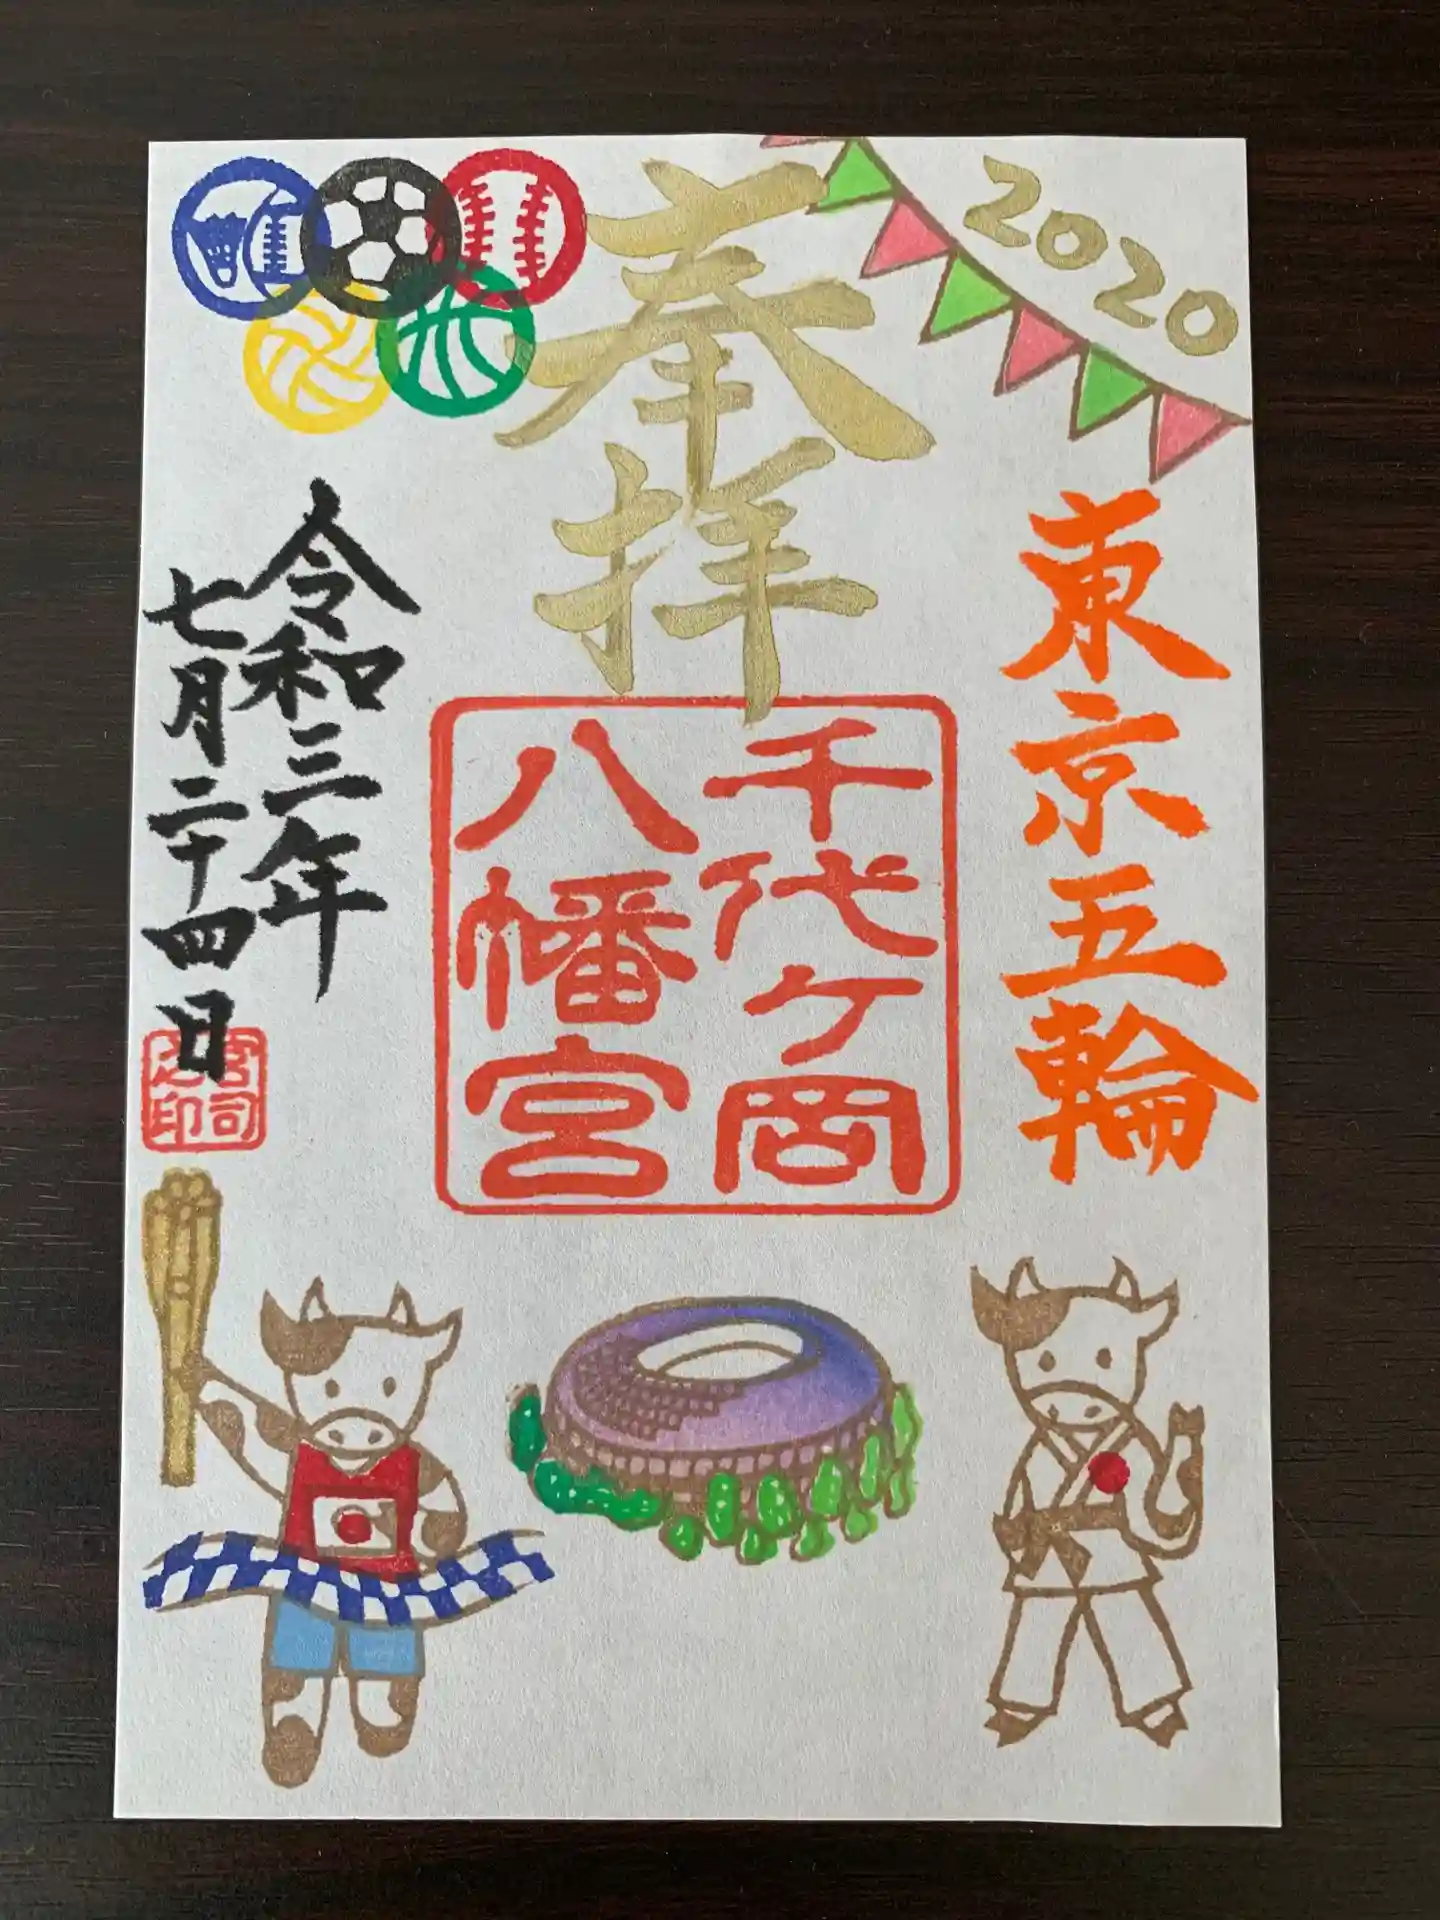 2020
東京五輪
奉拝
千代ヶ岡
八幡宮
令和三年
七月二十四日
宮司
之印